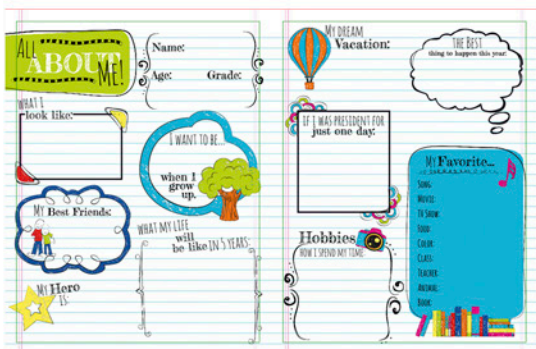 ALL
ABOUT
ME!
Name:
Age: Grade:
WHAT I
look like:
I WANT TO BE...
when I
grow
up.
MY Best Friends:
WHAT MY LIFE
will
be like IN 5 YEARS:
MY Hero
IS:
MY DREAM
Vacation:
THE BEST
thing to happen this year:
IF I WAS PRESIDENT FOR
just one day:
MY Favorite...
SONG:
MOVIE:
TV SHOW:
FOOD:
COLOR:
CLASS:
TEACHER:
ANIMAL:
BOOK:
Hobbies
HOW I SPEND MY TIME: